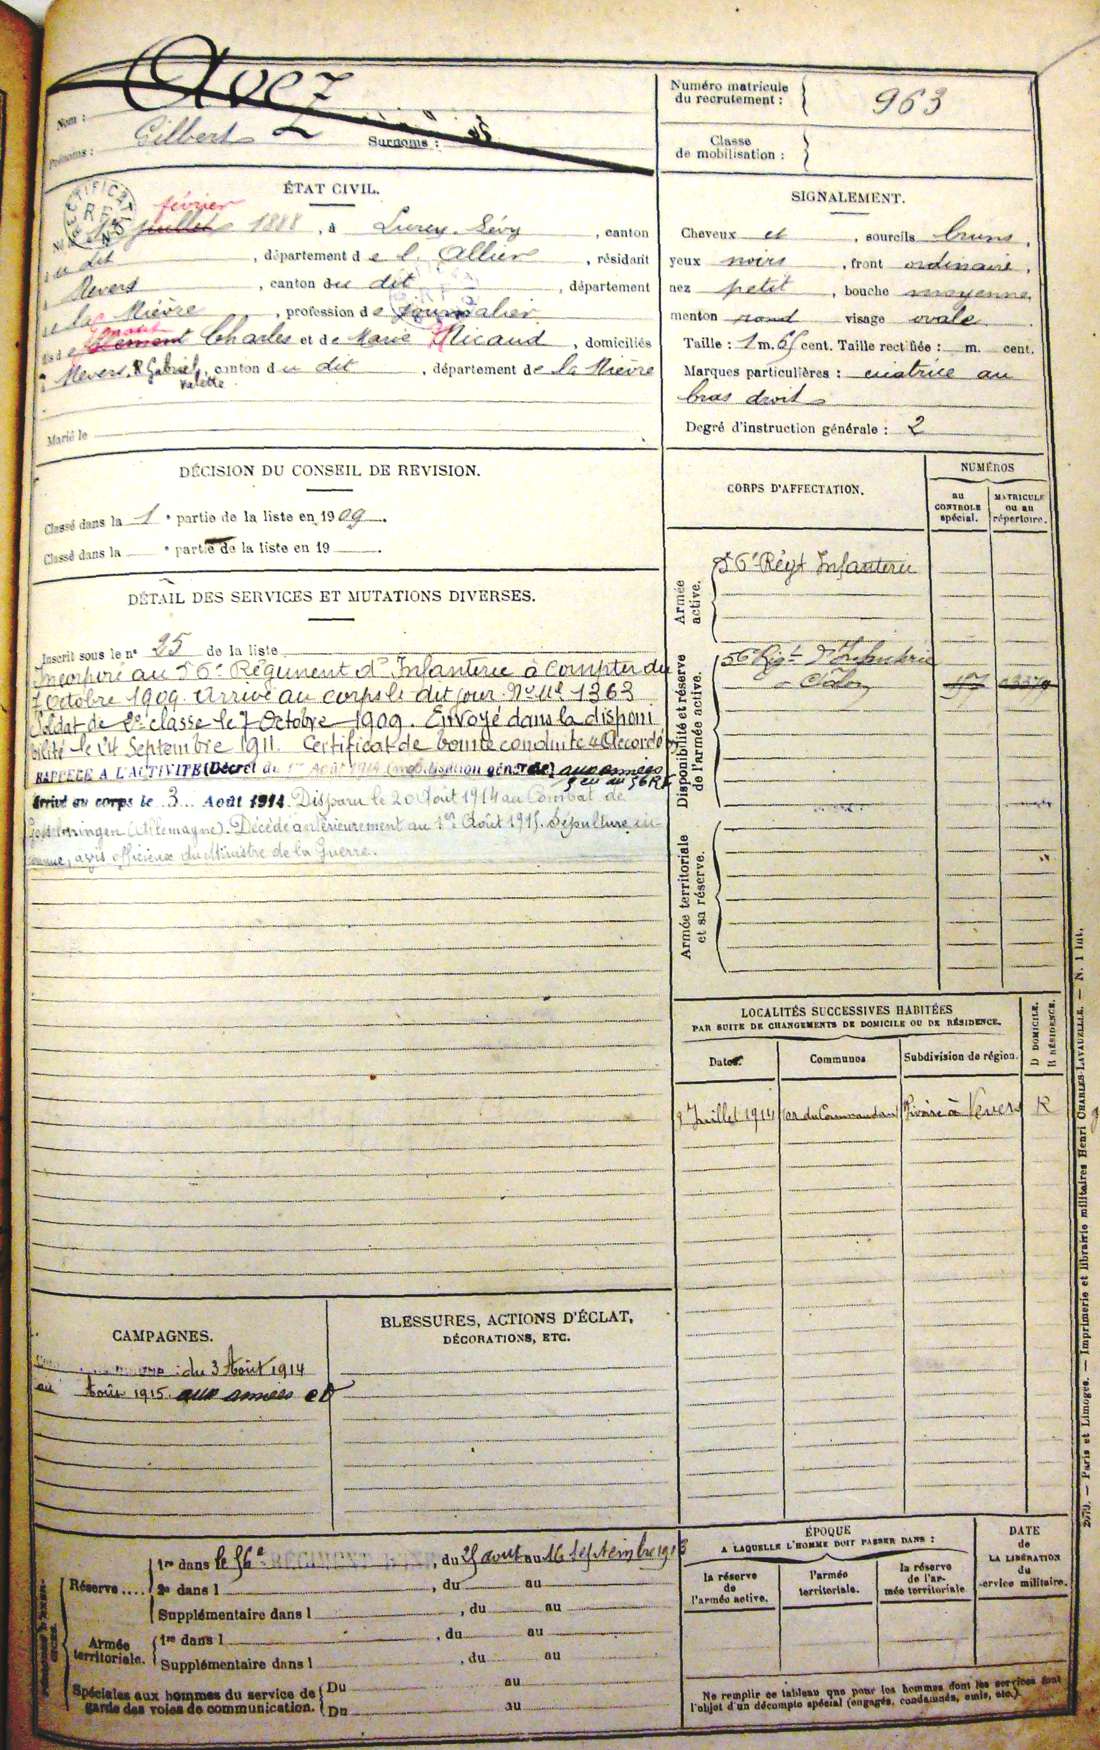 Avez
Nom :
Gilbert
Prénoms :
Surnoms :
Numéro matricule
du recrutement :
963
Classe
de mobilisation :
ÉTAT CIVIL.
RECTIFICATION
RF
février
juillet 1888, à Lurcy-Lévy, canton
du dit, département de l'Allier, résidant
à Nevers, canton du dit, département
de la Nièvre, profession de journalier
fils de Clément Charles et de Marie Micaud, domiciliés
à Nevers, R. Gabriel, canton du dit, département de la Nièvre
Valette
Marié le
SIGNALEMENT.
Cheveux et, sourcils bruns,
yeux noirs, front ordinaire,
nez petit, bouche moyenne,
menton rond visage ovale.
Taille : 1 m. 65 cent. Taille rectifiée : m. cent.
Marques particulières : cicatrice au
bras droit
Degré d'instruction générale : 2
DÉCISION DU CONSEIL DE REVISION.
Classé dans la 1e partie de la liste en 1909.
Classé dans la e partie de la liste en 19
DÉTAIL DES SERVICES ET MUTATIONS DIVERSES.
Inscrit sous le n° 25 de la liste
Incorporé au 56e Régiment d'Infanterie à compter du
7 Octobre 1909. Arrivé au corps le dit jour. No Mle 1363
Soldat de 2e classe le 7 Octobre 1909. Envoyé dans la disponi
bilité le 24 Septembre 1911. Certificat de bonne conduite "Accordé"
RAPPELÉ A L'ACTIVITÉ (Décret du 1er Août 1914 (mobilisation générale) aux armées
Arrivé au corps le 3 Août 1914. Disparu le 20 Août 1914 au Combat de
Gosselmingen (Allemagne). Décédé antérieurement au 1er Août 1915. Sépulture in-
connue, avis officieux du Ministre de la Guerre.
CORPS D'AFFECTATION.
NUMÉROS
au
CONTROLE
spécial.
MATRICULE
ou au
répertoire.
Armée
active.
56e Régt Infanterie
Disponibilité et réserve
de l'armée active.
56e Régt d'Infanterie
à Châlon
157
03379
Armée territoriale
et sa réserve.
LOCALITÉS SUCCESSIVES HABITÉES
PAR SUITE DE CHANGEMENTS DE DOMICILE OU DE RÉSIDENCE.
Dates.
Communes
Subdivision de région.
D DOMICILE.
R RÉSIDENCE.
9 Juillet 1914
Rivoire à Nevers
R
CAMPAGNES.
du 3 Août 1914
au Août 1915. aux armées
BLESSURES, ACTIONS D'ÉCLAT,
DÉCORATIONS, ETC.
Réserve
1re dans le 56e RÉGIMENT D'INF, du 25 août au 16 Septembre 1913
2e dans l, du au
Supplémentaire dans l, du au
Armée
territoriale.
1re dans l, du au
Supplémentaire dans l, du au
Spéciales aux hommes du service de
garde des voies de communication.
Du au
Du au
ÉPOQUE
A LAQUELLE L'HOMME DOIT PASSER DANS :
la réserve
de
l'armée active.
l'armée
territoriale.
la réserve
de l'ar-
mée territoriale
DATE
de
LA LIBÉRATION
du
service militaire.
Ne remplir ce tableau que pour les hommes dont les services sont
l'objet d'un décompte spécial (engagés, condamnés, omis, etc.).
2079. — Paris et Limoges. — Imprimerie et librairie militaires Henri CHARLES-LAVAUZELLE. — N. 1 Int.